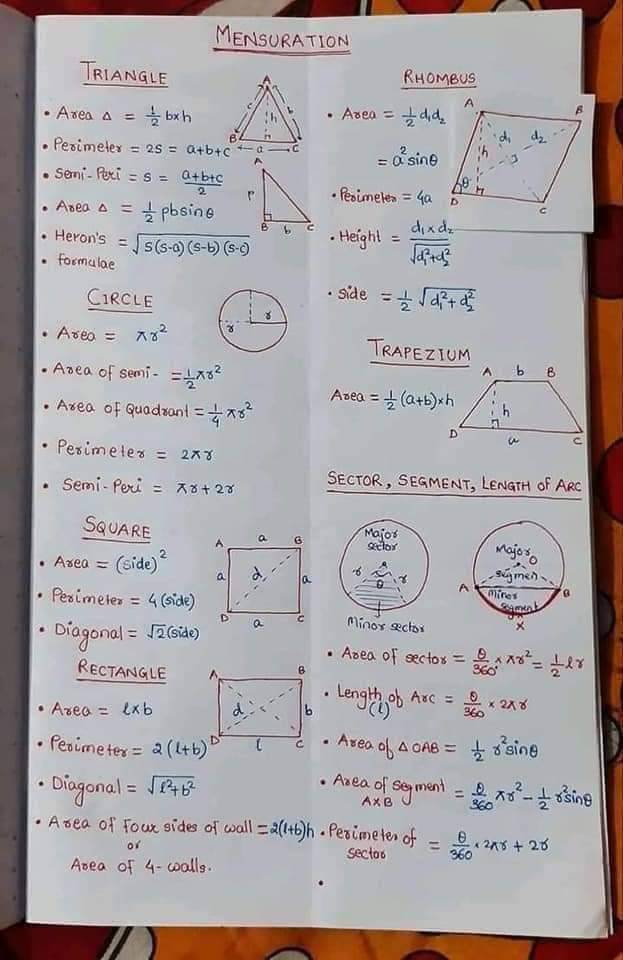 MENSURATION
TRIANGLE
• Area Δ = 1/2 b×h
• Perimeter = 2S = a+b+c
• Semi-Peri = S = (a+b+c)/2
• Area Δ = 1/2 pb sinθ
• Heron's = √s(s-a)(s-b)(s-c)
• formulae
A
c
b
h
B
a
C
A
P
B
b
C
CIRCLE
• Area = πr²
• Area of semi- = 1/2 πr²
• Area of Quadrant = 1/4 πr²
• Perimeter = 2πr
• Semi-Peri = πr + 2r
r
r
SQUARE
• Area = (side)²
• Perimeter = 4(side)
• Diagonal = √2(side)
A
a
B
a
d
a
D
a
C
RECTANGLE
• Area = l×b
• Perimeter = 2(l+b)
• Diagonal = √l²+b²
• Area of four sides of wall = 2(l+b)h
or
Area of 4-walls.
A
B
d
b
D
l
C
RHOMBUS
• Area = 1/2 d₁d₂
= a² sinθ
• Perimeter = 4a
• Height = (d₁×d₂)/√d₁²+d₂²
• Side = 1/2 √d₁²+d₂²
A
B
d₁
d₂
h
θ
D
C
TRAPEZIUM
Area = 1/2 (a+b)×h
A
b
B
h
D
a
C
SECTOR, SEGMENT, LENGTH of ARC
Major
sector
r
θ
r
Minor sector
Major
O
segmen
A
B
Minor
segment
X
• Area of sector = θ/360 × πr² = 1/2 lr
• Length of Arc = θ/360 × 2πr
(l)
• Area of Δ OAB = 1/2 r² sinθ
• Area of Segment = θ/360 πr² - 1/2 r² sinθ
AXB
• Perimeter of = θ/360 × 2πr + 2r
sector